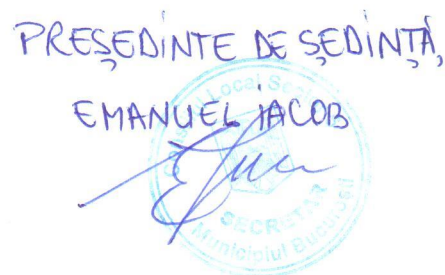 PREȘEDINTE DE ȘEDINȚĂ,
EMANUEL IACOB
Local Sec
SECRETAR
Municipiul București